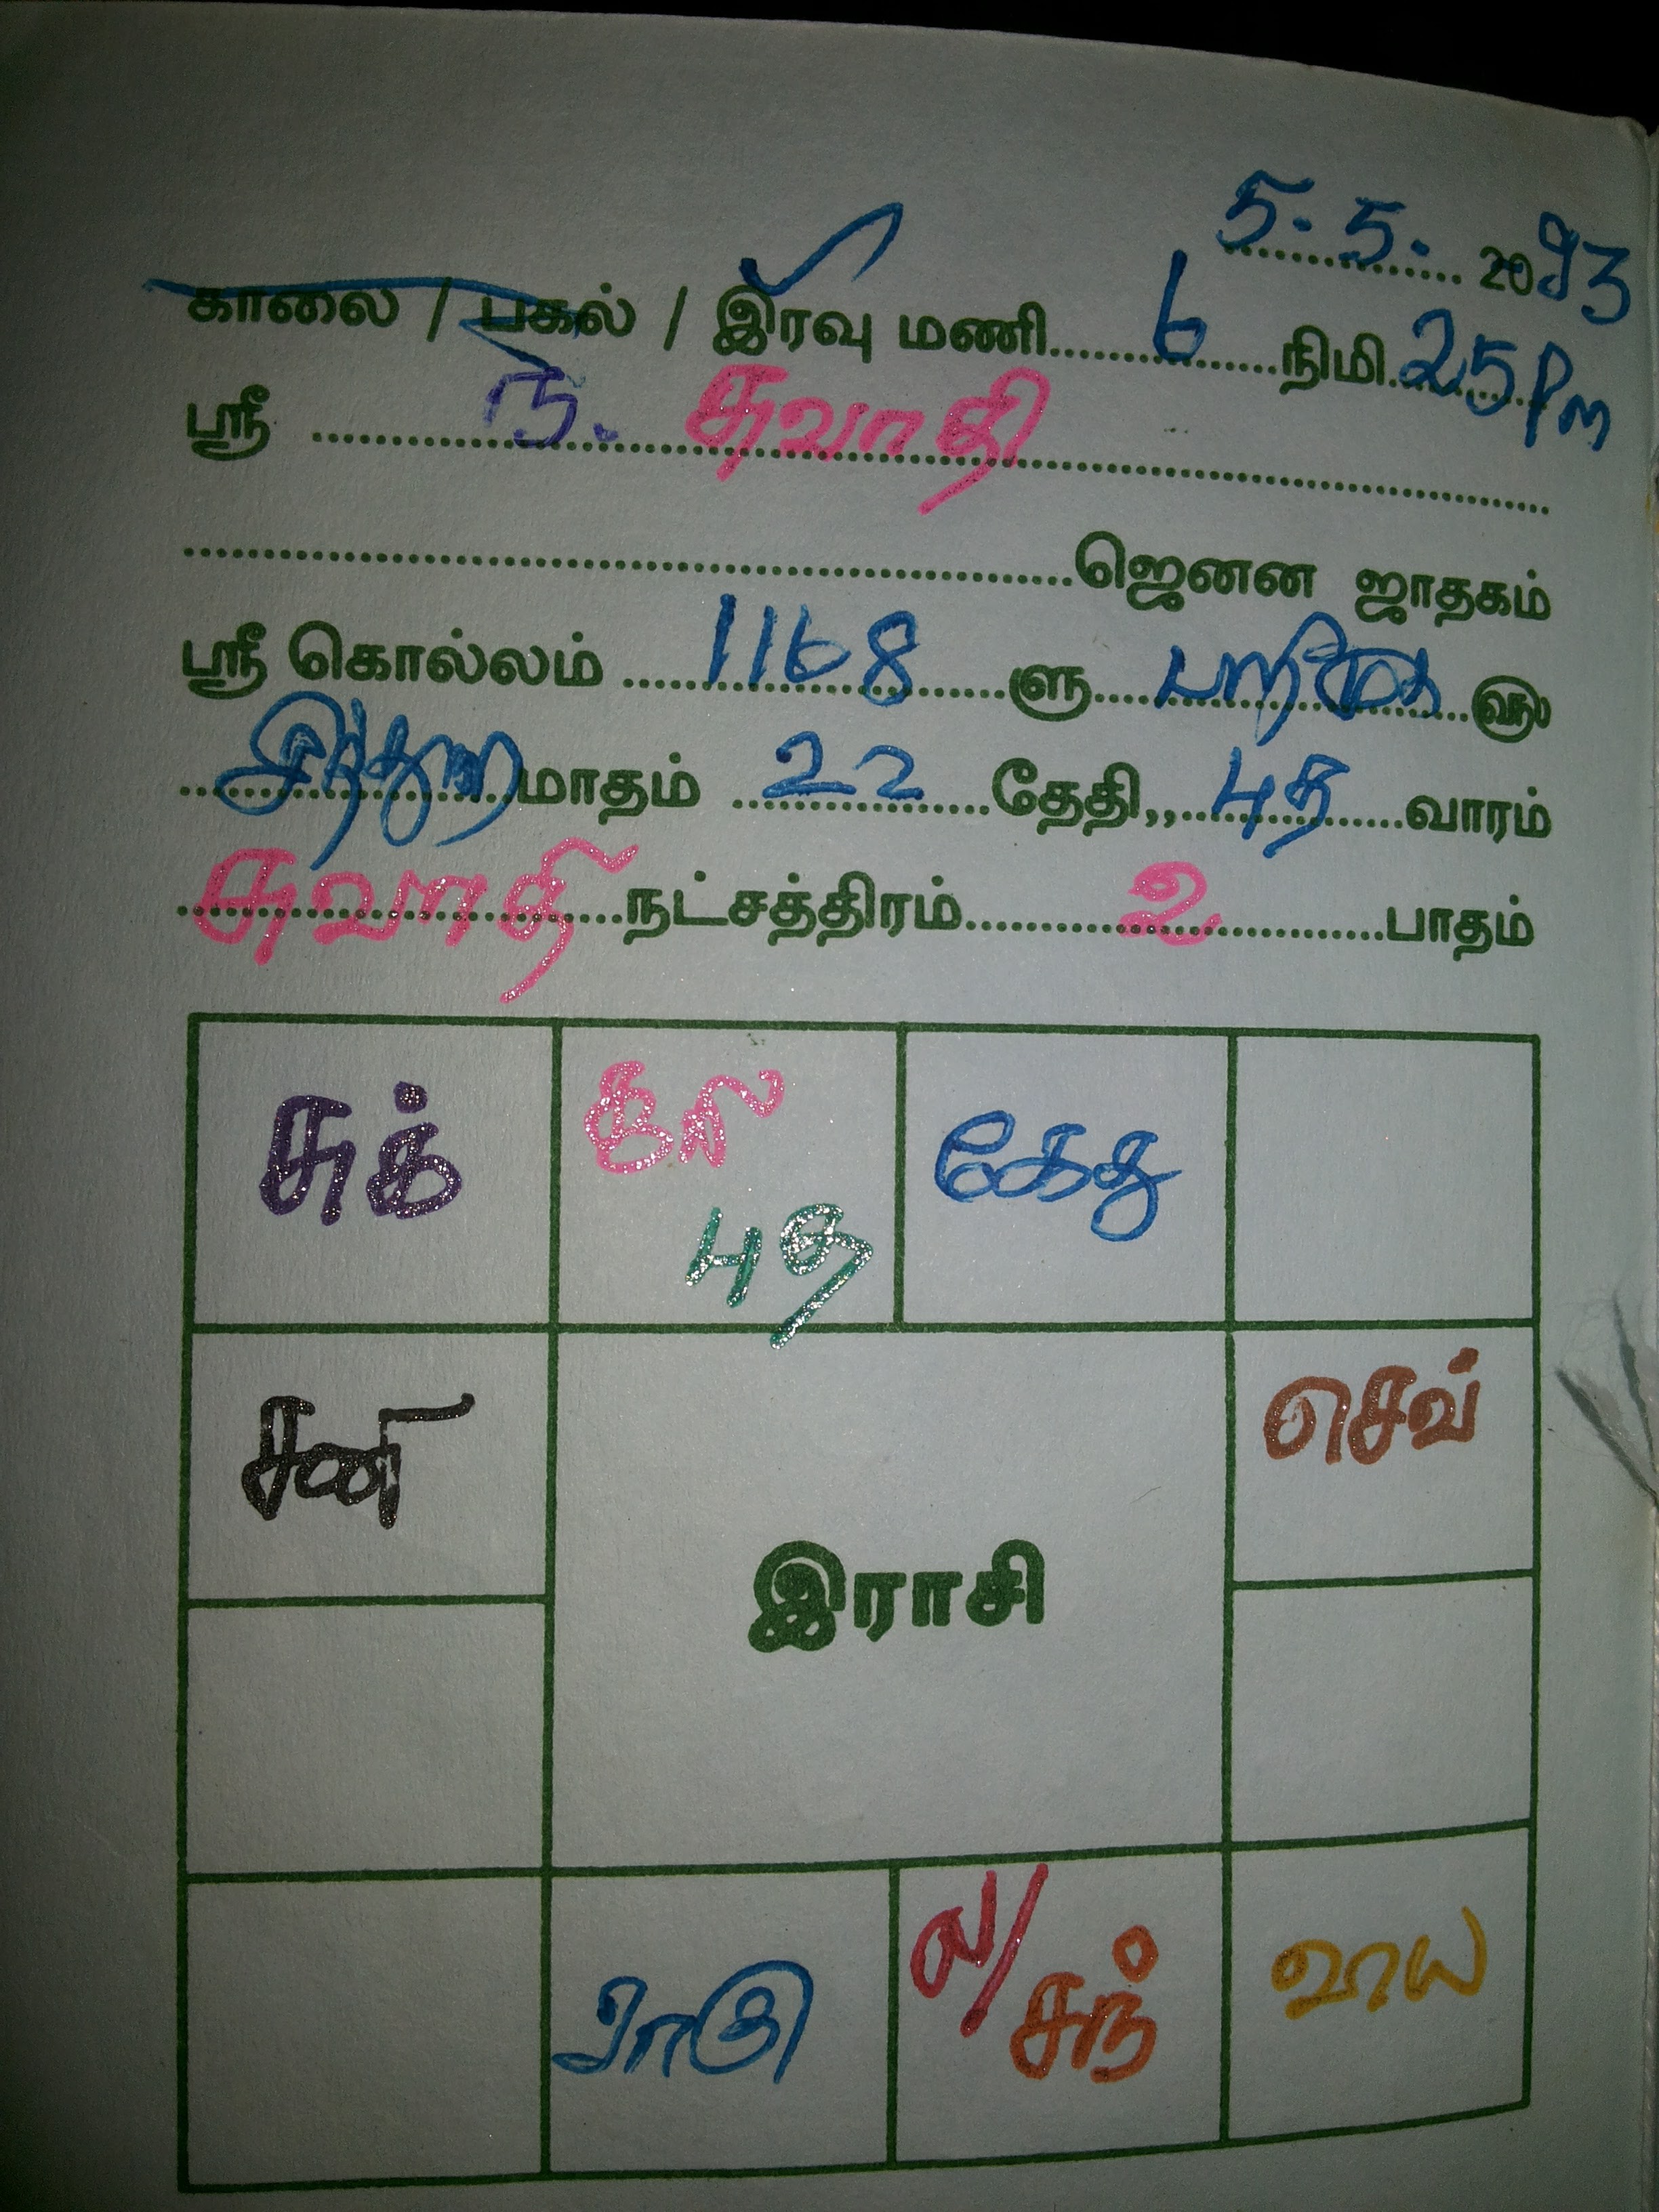 5.5. 2093
காலை / பகல் / இரவு மணி 6 நிமி 25 Pm
ஸ்ரீ சுவாதி
ஜெனன ஜாதகம்
ஸ்ரீ கொல்லம் 1168 ளு
மாதம் 22 தேதி,, புத வாரம்
சுவாதி நட்சத்திரம் 2 பாதம்
சுக் சூரி கேது
புத
சனி செவ்
இராசி
ராகு ல/ சந் வியா